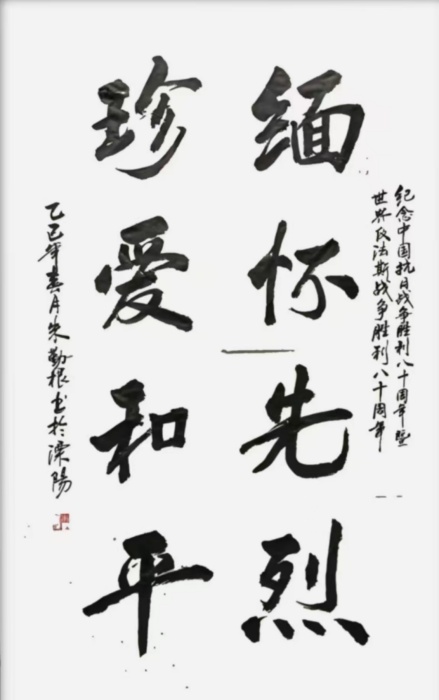 纪念中国抗日战争胜利八十周年暨
世界反法斯战争胜利八十周年
缅怀先烈
珍爱和平
乙巳年春月朱勤根书于溧阳